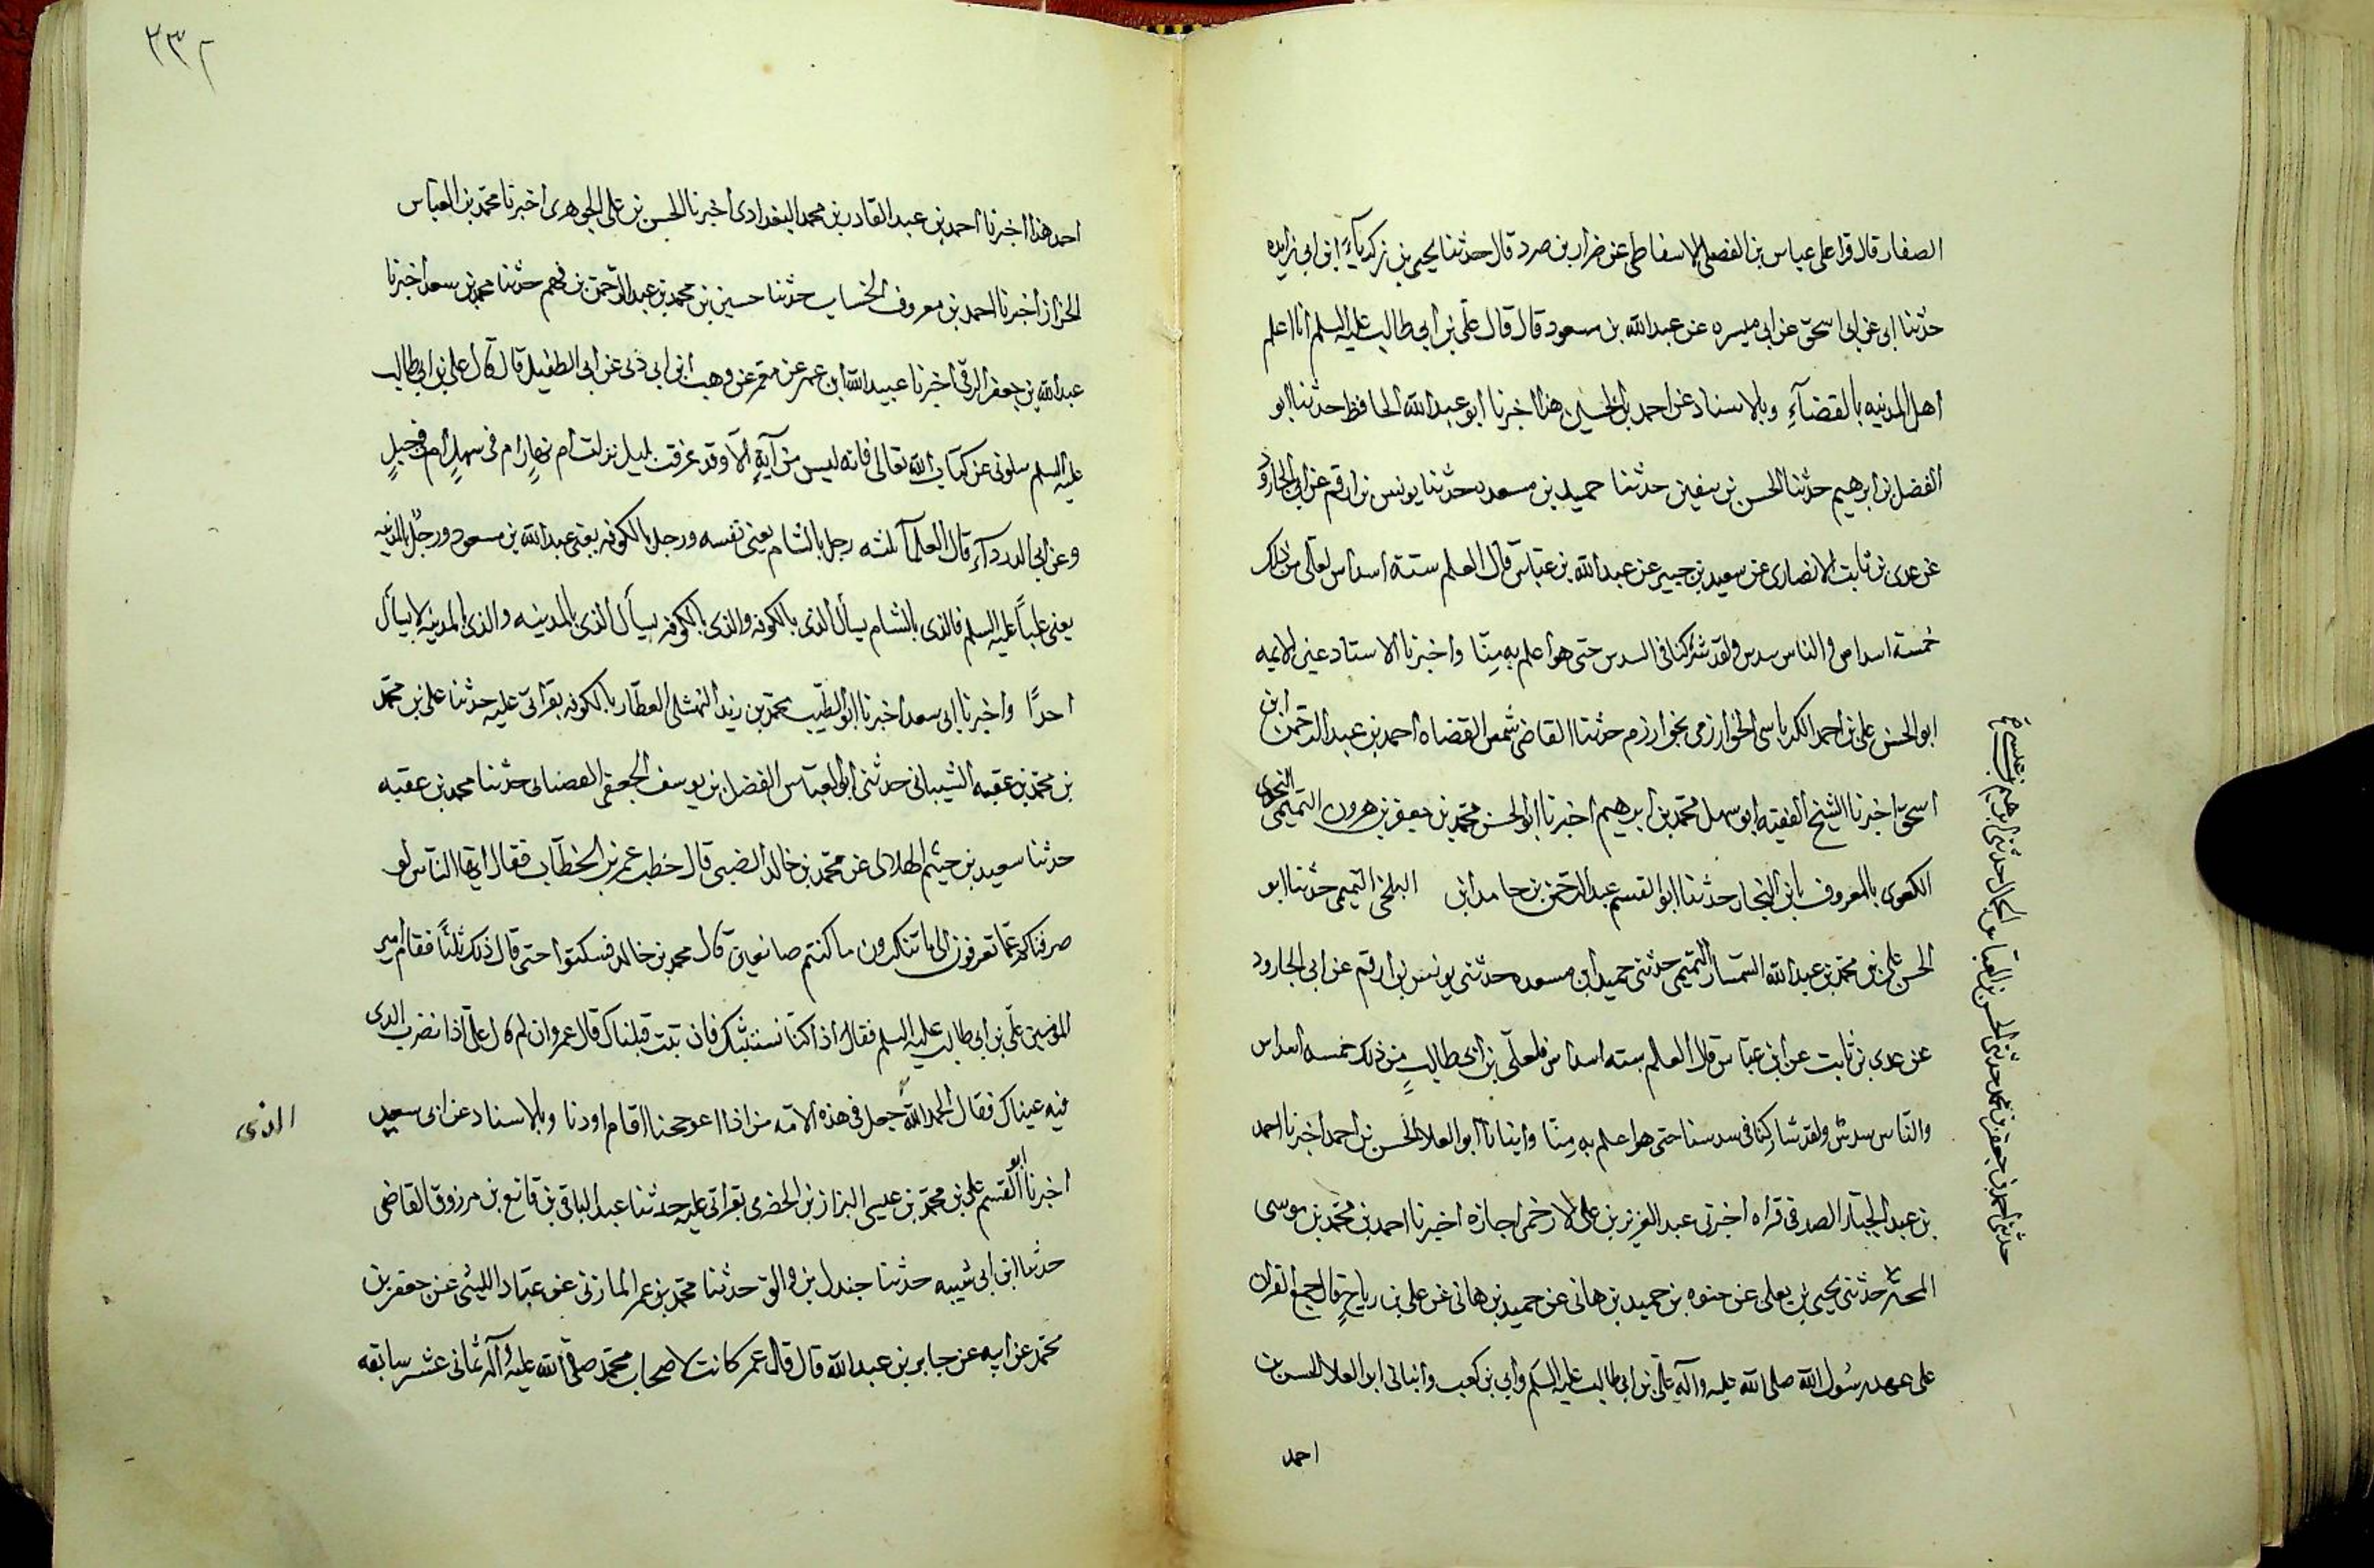 الصفار قال قرا على عباس بن الفضل الاسفاطى عن ضرار بن صرد قال حدثنا يحيى بن زكرياء ابن ابى زايده
حدثنا ابى عن ابى اسحق عن ابى ميسره عن عبد الله بن مسعود قال قال على بن ابى طالب عليه السلم انا اعلم
اهل المدينه بالقضآءِ وبالاسناد عن احمد بن الحسين هذا اخبرنا ابو عبد الله الحافظ حدثنا ابو
الفضل بن ابرهيم حدثنا الحسن بن سفين حدثنا حميد بن مسعده حدثنا يونس بن ارقم عن ابى الجارود
عن عدى بن ثابت الانصارى عن سعيد بن جبير عن عبد الله بن عباس قال العلم ستة اسداس لعلى من ذلك
خمسة اسداس والناس سدس ولقد شركنا فى السدس حتى هو اعلم به مِنّا واخبرنا الاستاد عين الايمه
ابو الحسن على بن احمد الكرباسى الخوارزمى بخوارزم حدثنا القاضى شمس القضاه احمد بن عبد الرحمن ابن
اسحق اخبرنا الشيخ الفقيه ابو سهل محمد بن ابرهيم اخبرنا ابو الحسن محمد بن جعفر بن هرون التميمى النحوى
الكوفى بالمعروف بابن النجار حدثنا ابو القسم عبد الرحمن بن حامد ابن البلخى التميمى حدثنا ابو
الحسن على بن محمد بن عبد الله السمسار التميمى حدثنى حميد ابن مسعده حدثنى يونس بن ارقم عن ابى الجارود
عن عدى بن ثابت عن ابن عباس قال العلم سته اسداس فلعلى بن ابى طالبٍ من ذلك خمسه اسداس
والنّاس سدسٌ ولقد شاركنا فى سدسنا حتى هو اعلم به مِنّا وانبانا ابو العلا الحسن بن احمد اخبرنا احمد
بن عبد الجبّار الصدفى قراه اخبرنى عبد العزيز بن على الازجى اجازه اخبرنا احمد بن محمد بن موسى
حدثنى يحيى بن يعلى عن حنوه بن حميد بن هانى عن حميد بن هانى عن على بن رباحٍ قال جمع القران
على عهد رسول الله صلى الله عليه وآله على بن ابى طالب عليه السلم وابى بن كعب وانبانى ابو العلا الحسن بن
احمد
حدثنى احمد بن جعفر بن محمد حدثنى الحسن بن العبّاس الجمال حدثنى ابرهيم بن عيسى
٢٣٢
احمد هذا اخبرنا احمد بن عبد القادر بن محمد البغدادى اخبرنا الحسن بن على الجوهرى اخبرنا محمد بن العباس
الخزاز اخبرنا احمد بن معروف الخشاب حدثنا حسين بن محمد بن عبد الرحمن بن فهم حدثنا محمد بن سعد اخبرنا
عبد الله بن جعفر الرقى اخبرنا عبيد الله ابن عمر عن معمر عن وهب ابن ابى دبى عن ابى الطفيل قال قال على بن ابى طالب
عليه السلم سلونى عن كتاب الله تعالى فانه ليس من آيةٍ الّا وقد عرفت بليل نزلت ام نهارٍ ام فى سهلٍ ام فى جبلٍ
وعن ابى الدرداءِ قال العلمآ ثلثه رجل بالشام يعنى نفسه ورجل بالكوفه يعنى عبد الله بن مسعود ورجلٌ بالمدينه
يعنى علياً عليه السلم فالذى بالشام يسأل الذى بالكوفه والذى بالكوفه يسأل الذى بالمدينه والذى بالمدينه لا يسأل
احدًا واخبرنا ابى سعد اخبرنا ابو الطّيب محمد بن زيد النهشلى العطّار بالكوفه بقرأتى عليه حدثنا على بن محمد
بن محمد بن عقبه الشيبانى حدثنى ابو العباس الفضل بن يوسف الجعفى القصبانى حدثنا محمد بن عقبه
حدثنا سعيد بن خيثم الهلالى عن محمد بن خالد الضبى قال خطب عمر بن الخطّاب فقال ايها النّاس لو
صرفناكم عمّا تعرفون الى ما تنكرون ما كنتم صانعين قال محمد بن خالد فسكتوا حتى قال ذلك ثلثًا فقام امير
المومنين على بن ابى طالب عليه السلم فقال اذا كنّا نستتيبك فان تبت قبلناك قال عمر وان لم قال على اذا نضرب الذى
فيه عيناك فقال الحمد لله جعل فى هذه الامّه من اذا اعوججنا اقام اودنا وبالاسناد عن ابى سعيد
الذى
اخبرنا ابو القسم على بن محمد بن عيسى البزاز بن الحضرمى بقراتى عليه حدثنا عبد الباقى بن قانع بن مرزوق القاضى
حدثنا ابن ابى شيبه حدثنا جندل بن والق حدثنا محمد بن عمر المازنى عن عبّاد الليثى عن جعفر بن
محمد عن ابيه عن جابر بن عبد الله قال قال عمر كانت لاصحاب محمد صلى الله عليه وآله ثمانى عشر سابقه